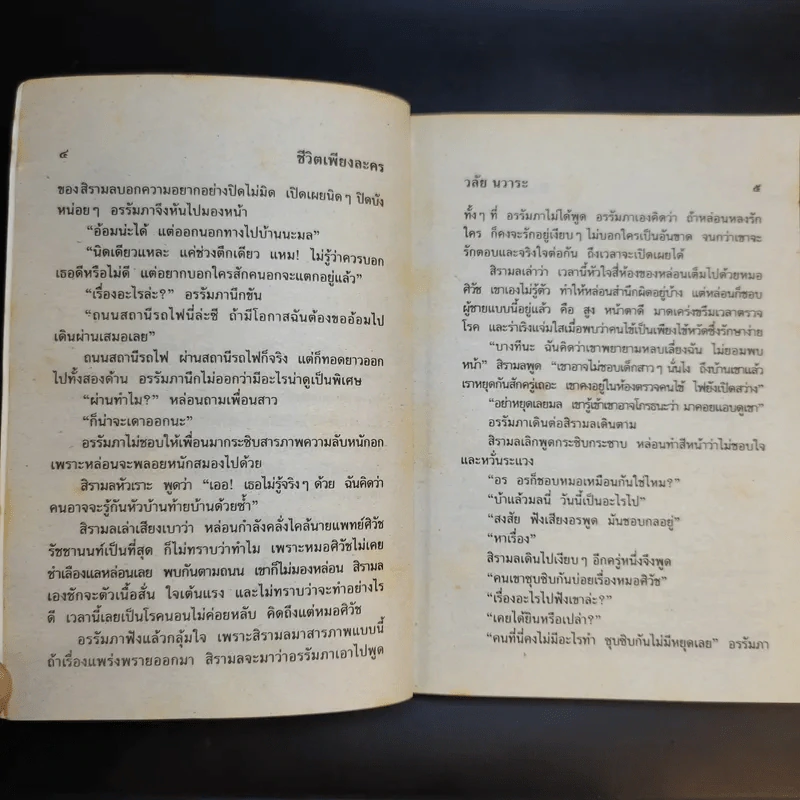 ๔
ชีวิตเพียงละคร
ของสิรามลบอกความอยากอย่างปิดไม่มิด เปิดเผยนิดๆ ปิดบัง
หน่อยๆ อรรัมภาจึงหันไปมองหน้า
“อ้อมน่ะได้ แต่ออกนอกทางไปบ้านนะมล”
“นิดเดียวแหละ แค่ช่วงตึกเดียว แหม! ไม่รู้ว่าควรบอก
เธอดีหรือไม่ดี แต่อยากบอกใครสักคนอกจะแตกอยู่แล้ว”
“เรื่องอะไรล่ะ?” อรรัมภานึกขัน
“ถนนสถานีรถไฟนี่ล่ะซี ถ้ามีโอกาสฉันต้องขออ้อมไป
เดินผ่านเสมอเลย”
ถนนสถานีรถไฟ ผ่านสถานีรถไฟก็จริง แต่ก็ทอดยาวออก
ไปทั้งสองด้าน อรรัมภานึกไม่ออกว่ามีอะไรน่าดูเป็นพิเศษ
“ผ่านทำไม?” หล่อนถามเพื่อนสาว
“ก็น่าจะเดาออกนะ”
อรรัมภาไม่ชอบให้เพื่อนมากระซิบสารภาพความลับหนักอก
เพราะหล่อนจะพลอยหนักสมองไปด้วย
สิรามลหัวเราะ พูดว่า “เออ! เธอไม่รู้จริงๆ ด้วย ฉันคิดว่า
คนอาจจะรู้กันหัวบ้านท้ายบ้านด้วยซ้ำ”
สิรามลเล่าเสียงเบาว่า หล่อนกำลังคลั่งไคล้นายแพทย์ศิวัช
รัชชานนท์เป็นที่สุด ก็ไม่ทราบว่าทำไม เพราะหมอศิวัชไม่เคย
ชำเลืองแลหล่อนเลย พบกันตามถนน เขาก็ไม่มองหล่อน สิรามล
เองชักจะตัวเนื้อสั่น ใจเต้นแรง และไม่ทราบว่าจะทำอย่างไร
ดี เวลานี้เลยเป็นโรคนอนไม่ค่อยหลับ คิดถึงแต่หมอศิวัช
อรรัมภาฟังแล้วกลุ้มใจ เพราะสิรามลมาสารภาพแบบนี้
ถ้าเรื่องแพร่งพรายออกมา สิรามลจะมาว่าอรรัมภาเอาไปพูด
วลัย นวาระ
๕
ทั้งๆ ที่ อรรัมภาไม่ได้พูด อรรัมภาเองคิดว่า ถ้าหล่อนหลงรัก
ใคร ก็คงจะรักอยู่เงียบๆ ไม่บอกใครเป็นอันขาด จนกว่าเขาจะ
รักตอบและจริงใจต่อกัน ถึงเวลาจะเปิดเผยได้
สิรามลเล่าว่า เวลานี้หัวใจสี่ห้องของหล่อนเต็มไปด้วยหมอ
ศิวัช เขาเองไม่รู้ตัว ทำให้หล่อนสำนึกผิดอยู่บ้าง แต่หล่อนก็ชอบ
ผู้ชายแบบนี้อยู่แล้ว คือ สูง หน้าตาดี มาดเคร่งขรึมเวลาตรวจ
โรค และร่าเริงแจ่มใสเมื่อพบว่าคนไข้เป็นเพียงไข้หวัดซึ่งรักษาง่าย
“บางทีนะ ฉันคิดว่าเขาพยายามหลบเลี่ยงฉัน ไม่ยอมพบ
หน้า” สิรามลพูด “เขาอาจไม่ชอบเด็กสาวๆ นั่นไง ถึงบ้านเขาแล้ว
เราหยุดกันสักครู่เถอะ เขาคงอยู่ในห้องตรวจคนไข้ ไฟยังเปิดสว่าง”
“อย่าหยุดเลยมล เขารู้เข้าเขาอาจโกรธนะว่า มาคอยแอบดูเขา”
อรรัมภาเดินต่อสิรามลเดินตาม
สิรามลเลิกพูดกระซิบกระซาบ หล่อนทำสีหน้าว่าไม่ชอบใจ
และหวั่นระแวง
“อร อรก็ชอบหมอเหมือนกันใช่ไหม?”
“บ้าแล้วมลนี่ วันนี้เป็นอะไรไป”
“สงสัย ฟังเสียงอรพูด มันชอบกลอยู่”
“หาเรื่อง”
สิรามลเดินไปเงียบๆ อีกครู่หนึ่งจึงพูด
“คนเขาซุบซิบกันบ่อยเรื่องหมอศิวัช”
“เรื่องอะไรไปฟังเขาล่ะ?”
“เคยได้ยินหรือเปล่า?”
“คนที่นี่คงไม่มีอะไรทำ ซุบซิบกันไม่มีหยุดเลย” อรรัมภา